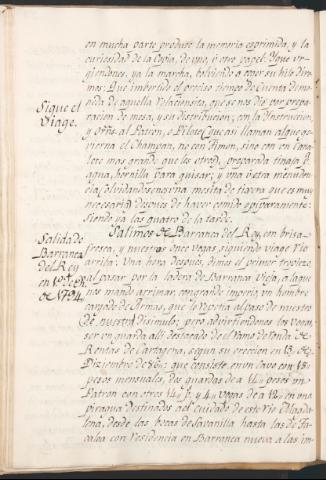 en mucha parte produse la memoria esprimida, y la
curiosidad de la Copia, de uno, ú otro papel. Y que ur-
giendonos, ya la marcha, bolviendo a coser su hilo dire-
mos: Que imbertido el preciso tiempo de Cuenta dema-
sida de aquella Relacionsita, que se nos dio por prepa-
racion de mesa, y su distribucion; con la Ynstruccion,
al Patron, o Piloto (que asi llaman al que go-
vierna el Champan, no con Timon, sino con un Cana-
lete mas grande que los otros) preparada tinaja p.
agua, hornilla para guisar; y una ú otra menuden-
cia (olvidandosenos una mesita de tixera que es muy
necesaria) despues de haver comido
siendo ya las quatro de la tarde.
Sigue el
Viage.
Salimos de Barranca del Rey, con brisa
fresca, y nuestros once vogas, siguiendo viage Rio
arriba: Una hora despues, dimos el primer tropiezo,
al pasar por la ladera de Barranca Vieja, a la que
nos mandó arrimar, con grande imperio, un hombre
cargado de Armas, que lo repetia al paso de nuestro
disimulo; pero advirtiendonos los vogas
ser en guarda alli destacado de el Ramo de Ronda de
Rentas de Cartagena, segun su ereccion en 13 de
Diziembre de que consiste, en un cavo con 18
pesos mensuales, dos guardas a 14 pesos un
Patron con otros 14 p. y 4 vogas de a 12 en una
piragua destinados al cuidado de este Rio Magda-
lena, desde las bocas de Savanilla hasta las de Ta-
caloa con residencia en Barranca nueva a las in-
Salida de
Barranca
del Rey
en 1º de
de 1794.